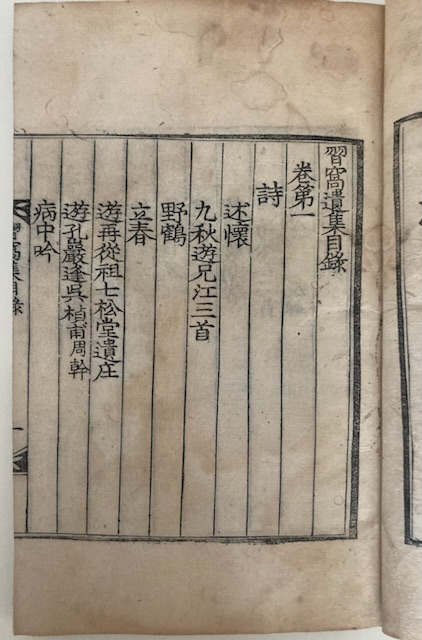 習窩遺集目錄
卷第一
詩
述懷
九秋遊兄江三首
野鶴
立春
遊再從祖七松堂遺庄
遊孔巖逢吳楨甫周幹
病中吟
習窩集目錄
一